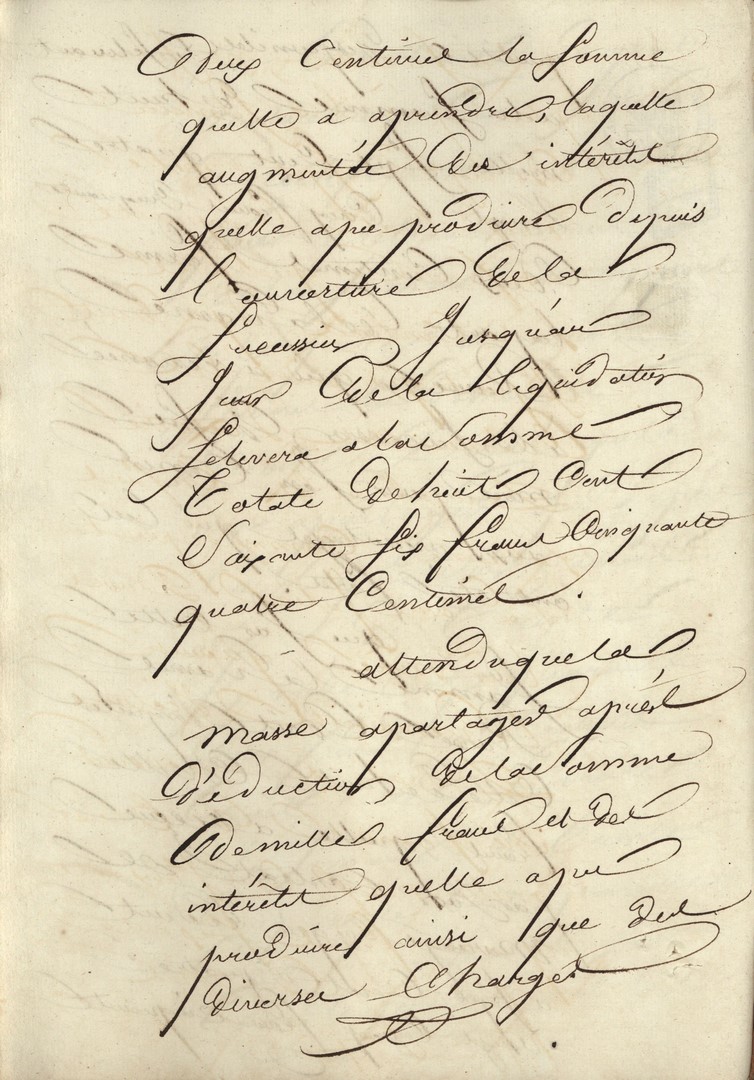 deux Centimes la Somme
quelle a aprendre, laquelle
augmentée des intérêts
quelle apu produire depuis
l'ouverture de la
Sucession Jusqu'au
Jour de la liquidation
Selevera a la Somme
Totale de huit Cent
Soixante Six francs Cinquante
quatre Centimes.
attendu que la
masse apartager après
déduction de la Somme
de mille francs et des
intérêts quelle apu
produire ainsi que des
diverses Charges